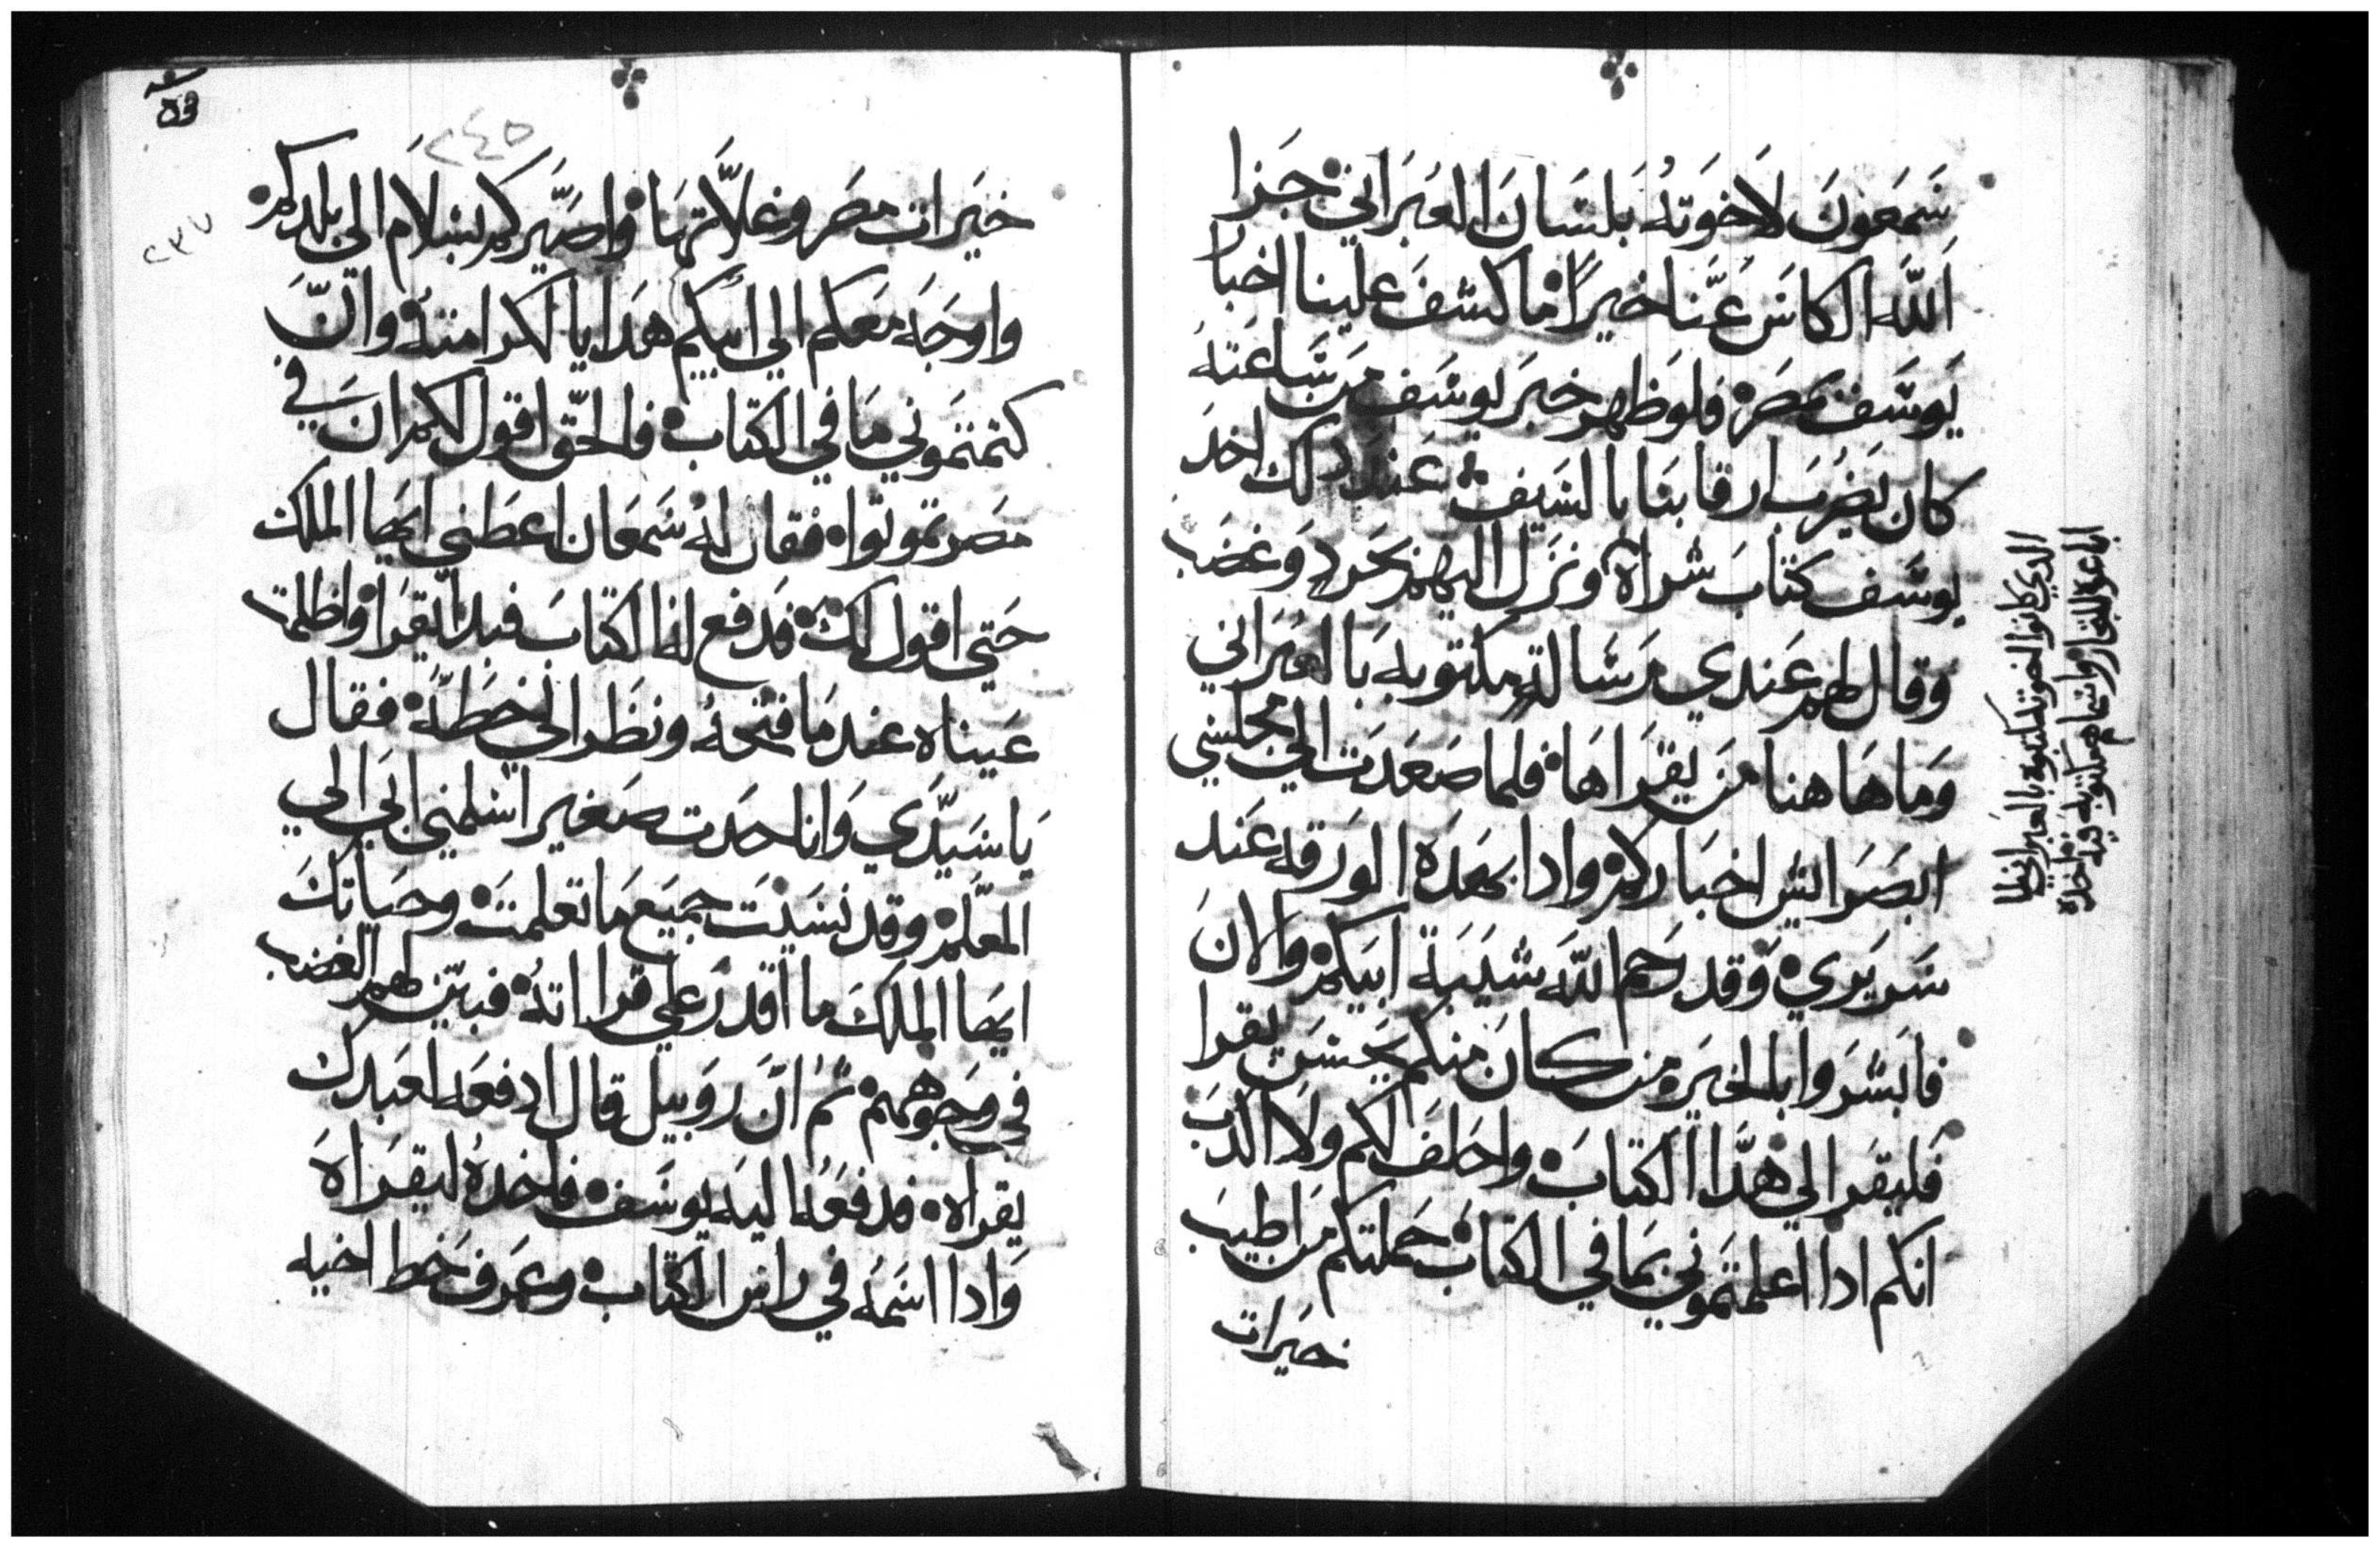 شمعون لاخوته بلسان العبراني جزا
الله الكاس عنا خيرا ما كشف علينا اخبا
يوسف بمصر فلو ظهر خبر يوسف من ساعته
كان يضرب ارقابنا بالسيف عند دلك اخد
يوسف كتاب شراه ونزل اليهم بحرد وغضب
وقال لهم عندي رسالة مكتوبه بالعبراني
وما هاهنا من يقراها فلما صعدت الي مجلسي
ابصر ايش اخباركم وادا بهده الورقه عند
سريري وقد رحم الله شيبة ابيكم والان
فابشروا بالخير من كان منكم يحسن يقرا
فليقرا لي هدا الكتاب واحلف لكم ولا اكدب
انكم ادا اعلمتموني بما في الكتاب حملتكم من اطيب
خيرات
الدي كانوا اخوته كتبوه بالعبراني لما
اباعوه للتجار واسماهم مكتوبه فيه فاخده
٢٤٥
٢٣٧
خيرات مصر وغلاتها واصيركم بسلام الى بلدكم
واوجه معكم الي ابيكم هدايا لكرامته وان
كتمتموني ما في الكتاب فالحق اقول لكم ان في
مصر تموتوا فقال له شمعان اعطني ايها الملك
حتي اقول لك فدفع لنا الكتاب فبدا يقرا واظلمت
عيناه عند ما فتحه ونظر الي خطه فقال
يا سيدي وانا حدت صغير اسلمني ابي الي
المعلم وقد نسيت جميع ما تعلمت وحياتك
ايها الملك ما اقدر علي قرااته فبين لهم الغضب
في وجوههم ثم ان روبيل قال ادفعه لعبدك
يقراه فدفعه اليه يوسف فاخده ليقراه
وادا اسمه في راس الكتاب وعرف خط اخيه